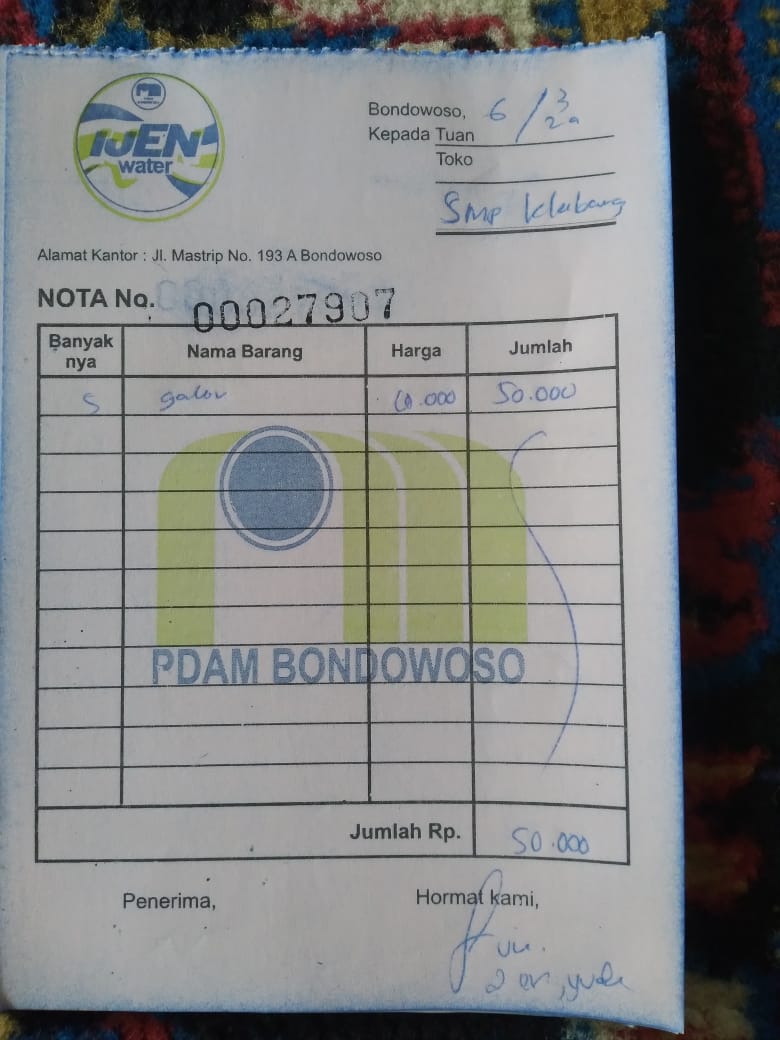 IJEN
water
Bondowoso, 6/3 20
Kepada Tuan
Toko
Smp Klabang
Alamat Kantor : Jl. Mastrip No. 193 A Bondowoso
NOTA No. 00027907
Banyak nya Nama Barang Harga Jumlah
5 galon 10.000 50.000
PDAM BONDOWOSO
Jumlah Rp. 50.000
Penerima, Hormat kami,